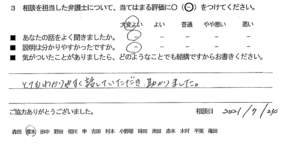 3 相談を担当した弁護士について、当てはまる評価に○(○)をつけてください。
大変よい よい 普通 やや悪い 悪い
■ あなたの話をよく聞きましたか。
■ 説明は分かりやすかったですか。
■ 気がついたことがありましたら、どのようなことでも結構ですからお書きください。
とてもわかりやすく話していただき、助かりました。
ご協力ありがとうございました。
相談日 2021/9/30
森田 橋本 田中 野田 相原 申 吉田 村本 小野塚 時田 池田 赤木 木村 平栗 篠田